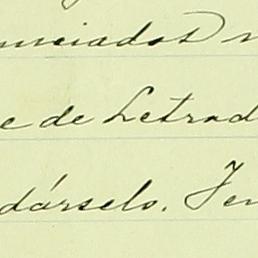 unciados n
e de Letrad
dárselo. Ten